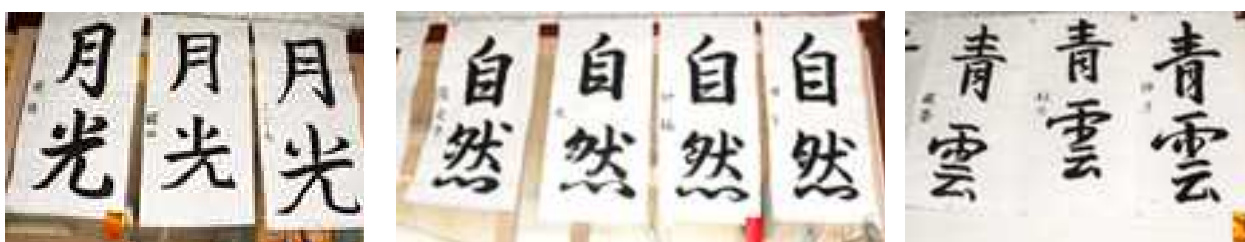 月光
月光
月光
自然
自然
自然
自然
青雲
青雲
青雲